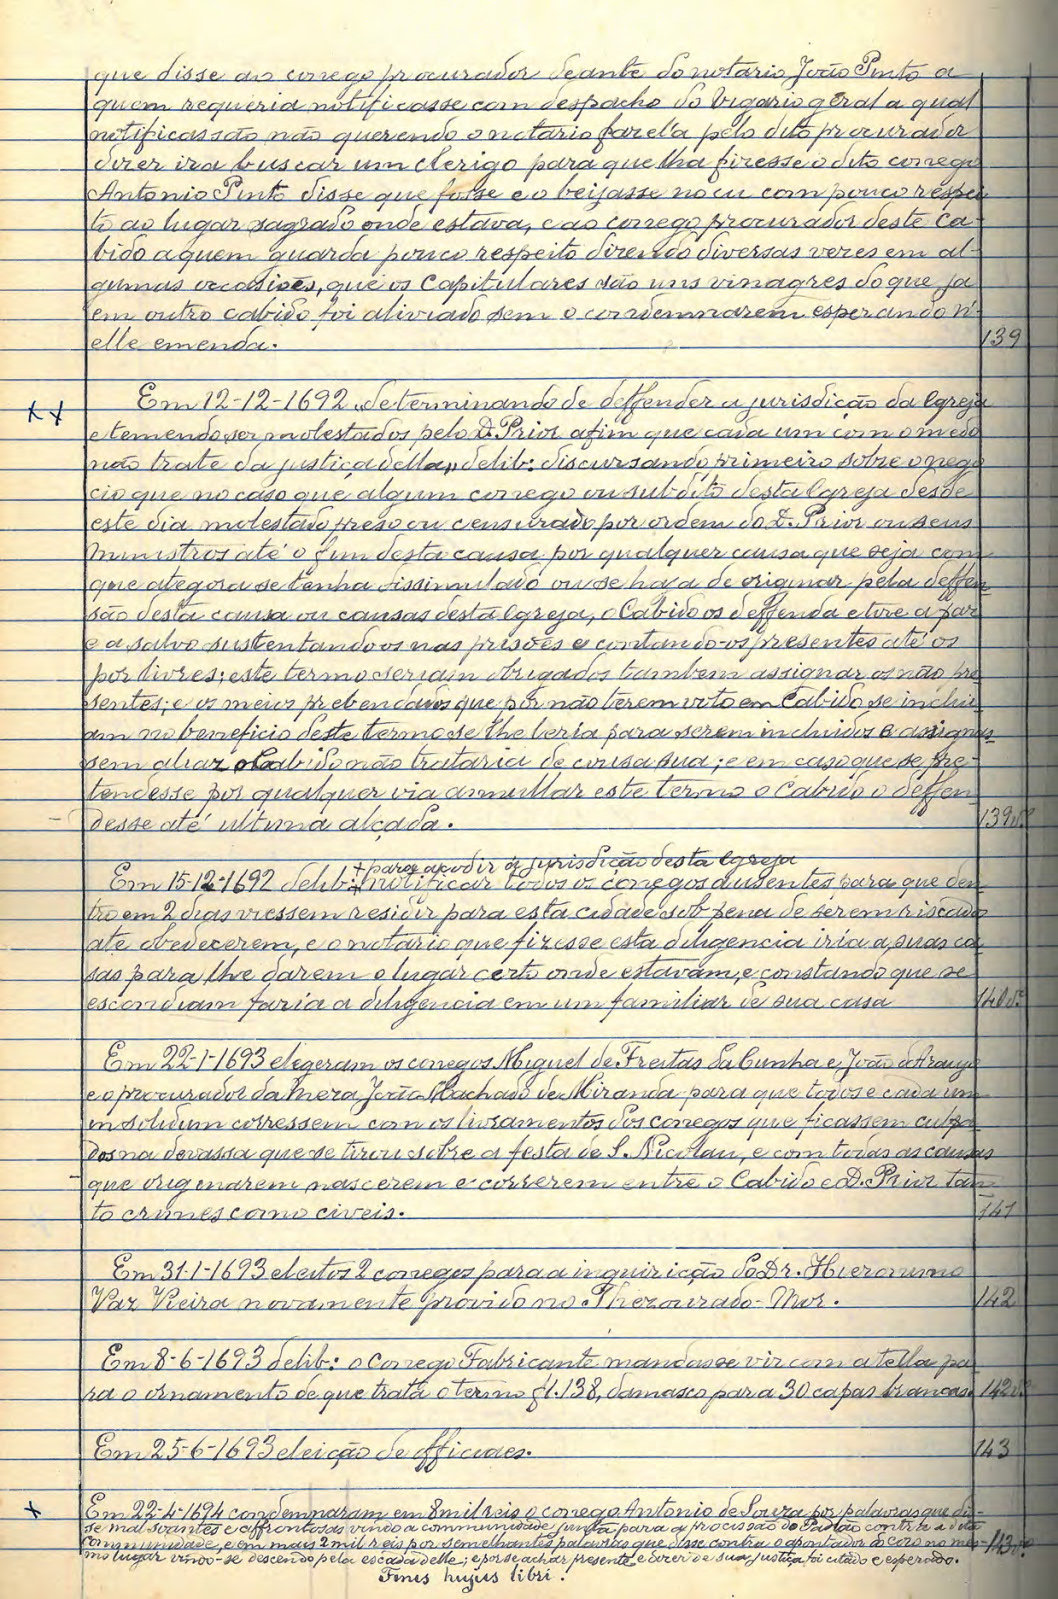 que disse ao conego procurador deante do notario João Pinto a
quem requeria notificasse com despacho do Vigario geral a qual
notificassão não querendo o notario fazella pelo dito procurador
dizer ira buscar um clerigo para que lha fizesse o dito conego
Antonio Pinto disse que fosse e o beijasse no cu com pouco respei-
to ao lugar sagrado onde estava, e ao conego procurador deste Ca-
bido a quem guarda pouco respeito dizendo diversas vezes em al-
gumas occasiões, que os Capitulares são uns vinagres do que ja
em outro cabido foi aliviado sem o condemnarem esperando n'
elle emenda. 139
XX Em 12-12-1692 "determinando de deffender a jurisdição da Igreja
e temendo ser molestados pelo D. Prior afim que cada um com o medo
não trate da justiça della", delib: discursando primeiro sobre o nego
cio que no caso que algum conego ou subdito desta Igreja desde
este dia molestado preso ou censurado por ordem do D. Prior ou seus
ministros até o fim desta causa por qualquer causa que seja com
que ategora se tenha dissimulado ou se haja de originar pela deffen-
são desta causa ou causas desta Igreja, o Cabido os deffenda e tire a paz
e a salvo sustentando-os nas prisões e contando-os presentes até os
por livres; este termo seriam obrigados tambem assignar os não pre
sentes; e os meios prebendados que por não terem voto em Cabido se inclui
am no beneficio deste termo se lhe leria para serem incluidos e assignas-
sem aliaz o Cabido não trataria de cousa sua; e em caso que se pre-
tendesse por qualquer via annullar este termo o Cabido o deffen-
desse até ultima alçada. 139v.º
+ para acodir á jurisdição desta Igreja
Em 15-12-1692 delib: + notificar todos os conegos ausentes para que den-
tro em 2 dias viessem residir para esta cidade sob pena de serem riscados
até obedecerem, e o notario que fizesse esta diligencia iria a suas ca-
sas para lhe darem o lugar certo onde estavam, e constando que se
escondiam faria a diligencia em um familiar de sua casa 140v.º
Em 22-1-1693 elegeram os conegos Miguel de Freitas da Cunha e João d'Araujo
e o procurador da meza João Machado de Miranda para que todos e cada um
in solidum corressem com os livramentos dos conegos que ficassem culpa-
dos na devassa que se tirou sobre a festa de S. Nicolau, e com todas as causas
que originarem nascerem e correrem entre o Cabido e D. Prior tan-
to crimes como civeis. 141
Em 31-1-1693 eleitos 2 conegos para a inquirição do Dr. Hieronimo
Vaz Vieira novamente provido no Thezourado-Mor. 142
Em 8-6-1693 delib: o Conego Fabricante mandasse vir com a tella pa-
ra o ornamento de que trata o termo fl. 138, damasco para 30 capas brancas. 142v.º
Em 25-6-1693 eleição de officiaes. 143
X Em 22-4-1694 condemnaram em 8 mil reis o conego Antonio de Souza por palavras que dis-
se mal soantes e affrontosas vindo a communidade junta para a procissão do Padrão contra a dita
communidade, e em mais 2 mil reis por semelhantes palavras que disse contra o apontador do coro no mes- 143v.º
mo lugar vindo-se descendo pela escada delle; e por se achar presente e dizer de sua justiça foi citado e esperado.
Finis hujus libri.